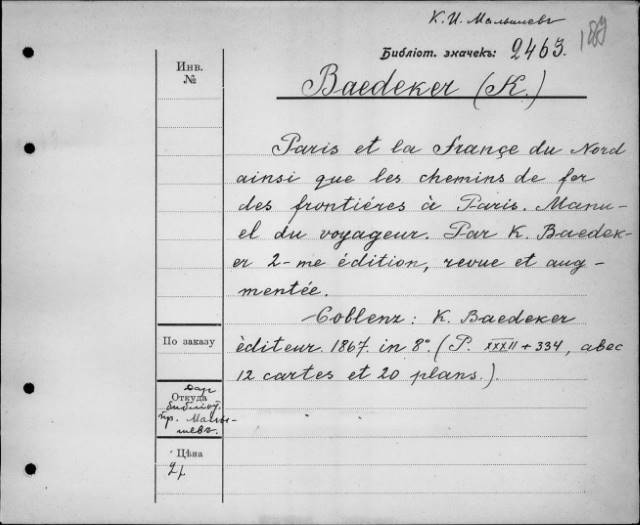 К. И. Малышевъ
189
Библіот. значекъ: 2463.
Инв.
№
Baedeker (K.)
Paris et la Françe du Nord
ainsi que les chemins de fer
des frontiéres à Paris. Manu-
el du voyageur. Par K. Baedek-
er 2-me édition, revue et aug-
mentée.
Coblenz: K. Baedeker
éditeur. 1867. in 8° (P. XXXII + 334, avec
12 cartes et 20 plans.).
По заказу
Откуда
Дар
библіот.
пр. Малы-
шевъ.
Цѣна
2 р.